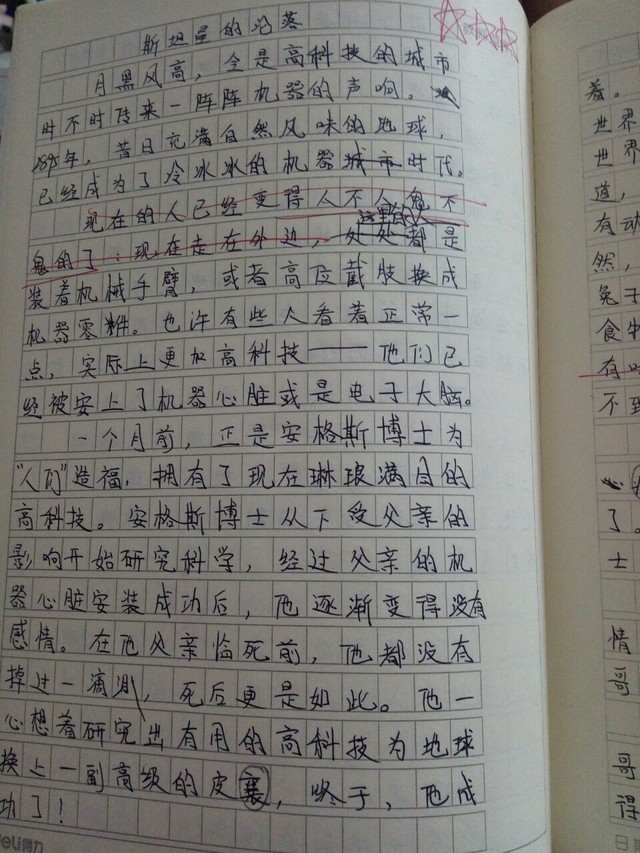 斯坦星的沦落
月黑风高，全是高科技的城市
时不时传来一阵阵机器的声响，
2895年，昔日充满自然风味的地球，
已经成为了冷冰冰的机器城市时代。
现在的人已经变得人不人鬼不
这里的人
鬼的了：现在走在外边，处处都是
装着机械手臂，或者高及截肢换成
机器零件。也许有些人看着正常一
点，实际上更加高科技——他们已
经被安上了机器心脏或是电子大脑。
一个月前，正是安格斯博士为
“人们”造福，拥有了现在琳琅满目的
高科技。安格斯博士从下受父亲的
影响开始研究科学，经过父亲的机
器心脏安装成功后，他逐渐变得没有
感情。在他父亲临死前，他都没有
掉过一滴泪，死后更是如此。他一
心想着研究出有用的高科技为地球
换上一副高级的皮囊，终于，他成
功了！
deli得力
着。
世界
世界
道，
有动
然，
兔子
食物
有
不到
了。
士
情
哥
哥
得